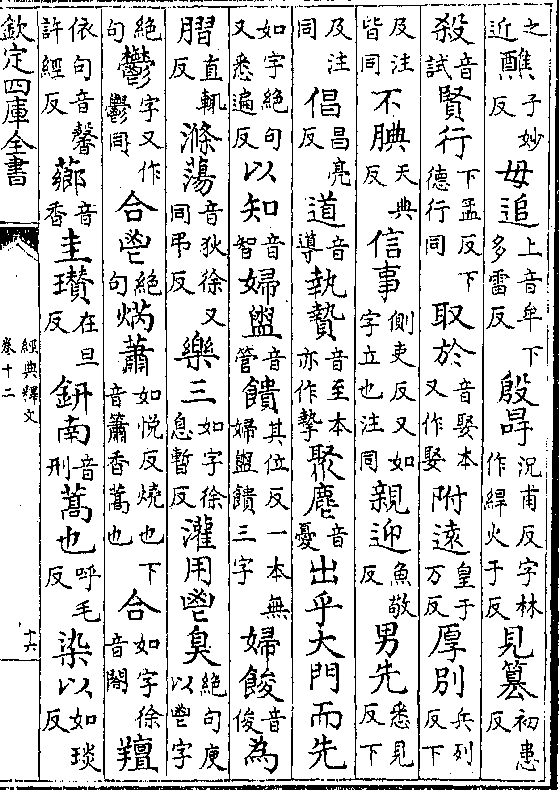 之近醮子妙反毋追上音牟下多雷反殷冔況甫反字林作縪火于反見簒初患反
殺音試賢行下孟反下德行同取於音娶本又作娶附遠皇于万反厚別兵列反下
及注皆同不腆天典反信事側吏反又如字立也注同親迎魚敬反男先悉見反下
及注同倡昌亮反道音導執贄音至本亦作摯聚麀音憂出乎大門而先
如字絕句又悉遍反以知音智婦盥音管饋其位反一本無婦盥饋三字婦餕音俊為
䐲直輒反滌蕩音狄徐又同弔反樂三如字徐息暫反灌用鬯臭絕句庾以鬯字
絕句鬱字又作鬱同合鬯絕句焫蕭如悅反燒也下音簫香蒿也合如字徐音閤羶
依句音馨許經反薌音香圭瓚在旦反鈃南音刑蒿也呼毛反染以如琰反
欽定四庫全書
經典釋文
卷十二
十六